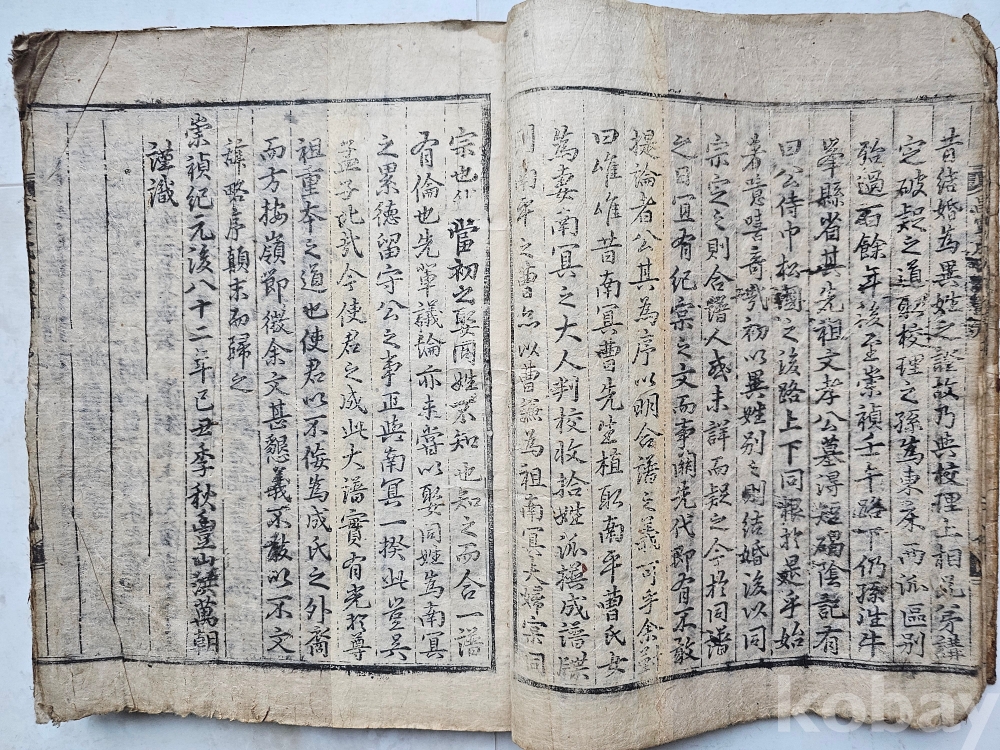 昔結婚爲異姓之證故乃與校理上相
定破疑之道耶校理之孫爲東床兩派區別
殆過百餘年後至崇禎壬午 下仍孫
縣省其先祖文孝公墓得短碣陰記有
曰公侍中松國之後路上下同 於是乎始
着 喜奇哉初以異姓別之則結婚後以同
宗定之則合譜人或未詳而疑之今於同譜
之日宜有紀宗之文而事關先代即有不敢
提論者公其爲序以明合譜之義可乎余對
曰唯唯昔南冥曺先生植取南平曺氏女
爲妻南冥之大人判校收拾姓派撰成譜牒
則南平之曺亦以曺謙爲祖南冥夫婦宗同
宗也 當初之娶同姓不知也知之而合一譜
有倫也先輩議論亦未嘗以娶同姓爲南冥
之累德留守公之事正與南冥一揆此豈吳
孟子比哉今使君之成此大譜實有光於尊
祖重本之道也使君以不佞爲成氏之外裔
而方按嶺節徵余文甚懇義不敢以不文
辭略序顚末而歸之
崇禎紀元後八十二年己丑季秋豊山洪萬朝
謹識
kobay